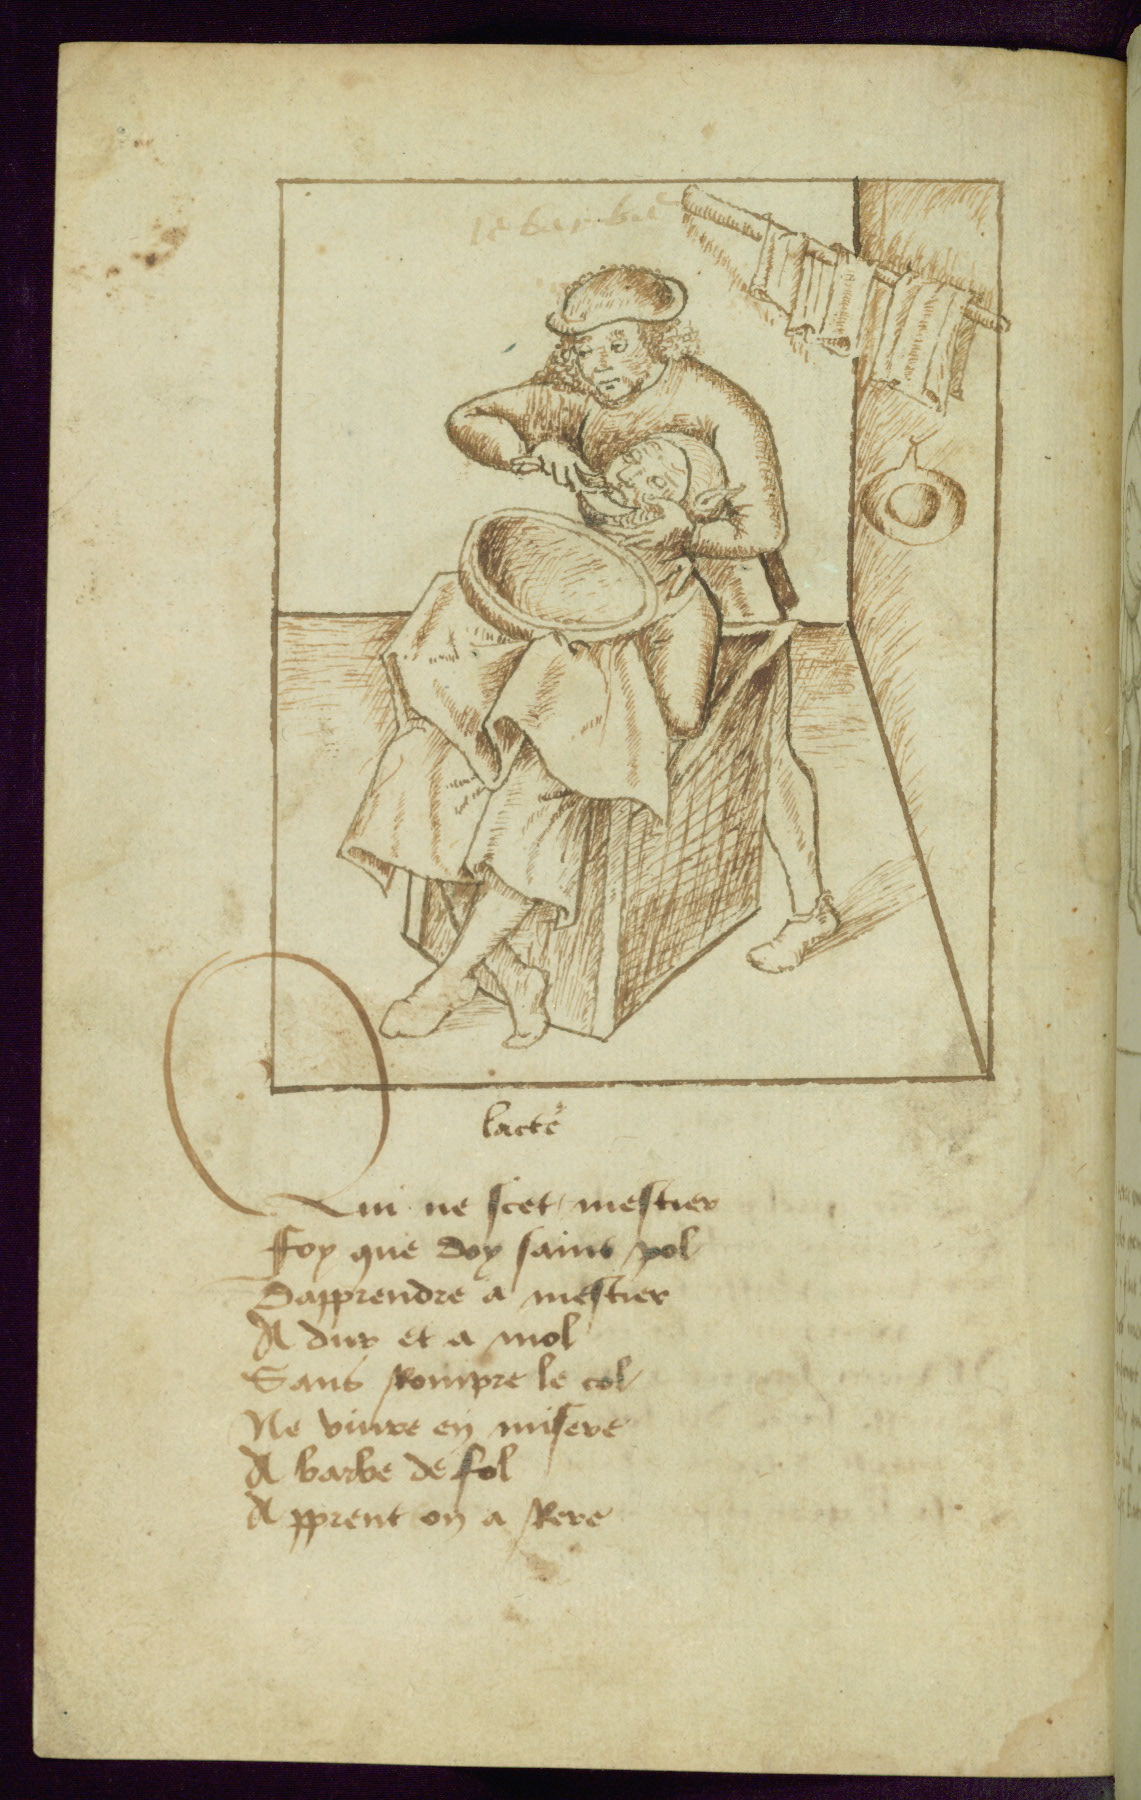 le barbie
lacte
Qui ne scet mestier
Foy que doy saint pol
Dapprendre a mestier
A dur et a mol
Sans Rompre le col
Ne viure en misere
A barbe de fol
Apprent on a Rere